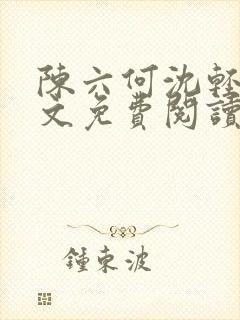 陳六何沈輕
文免費閱讀
鍾東波